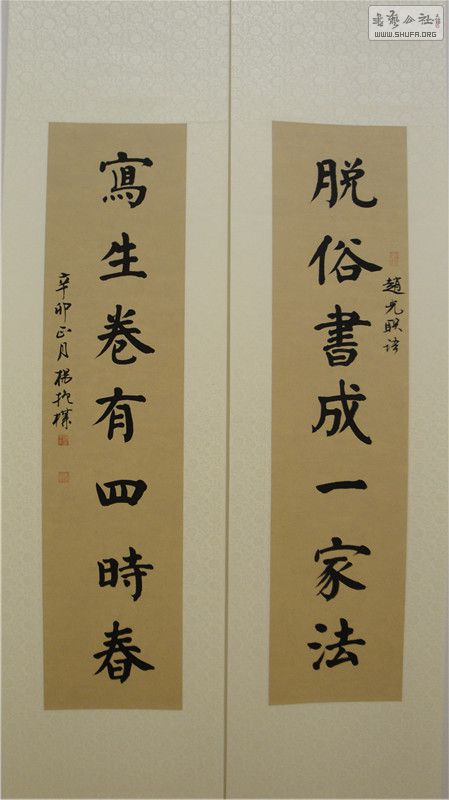 脱俗書成一家法
趙光联语
寫生卷有四時春
辛卯正月楊抱樸
書藝公社
WWW.SHUFA.ORG